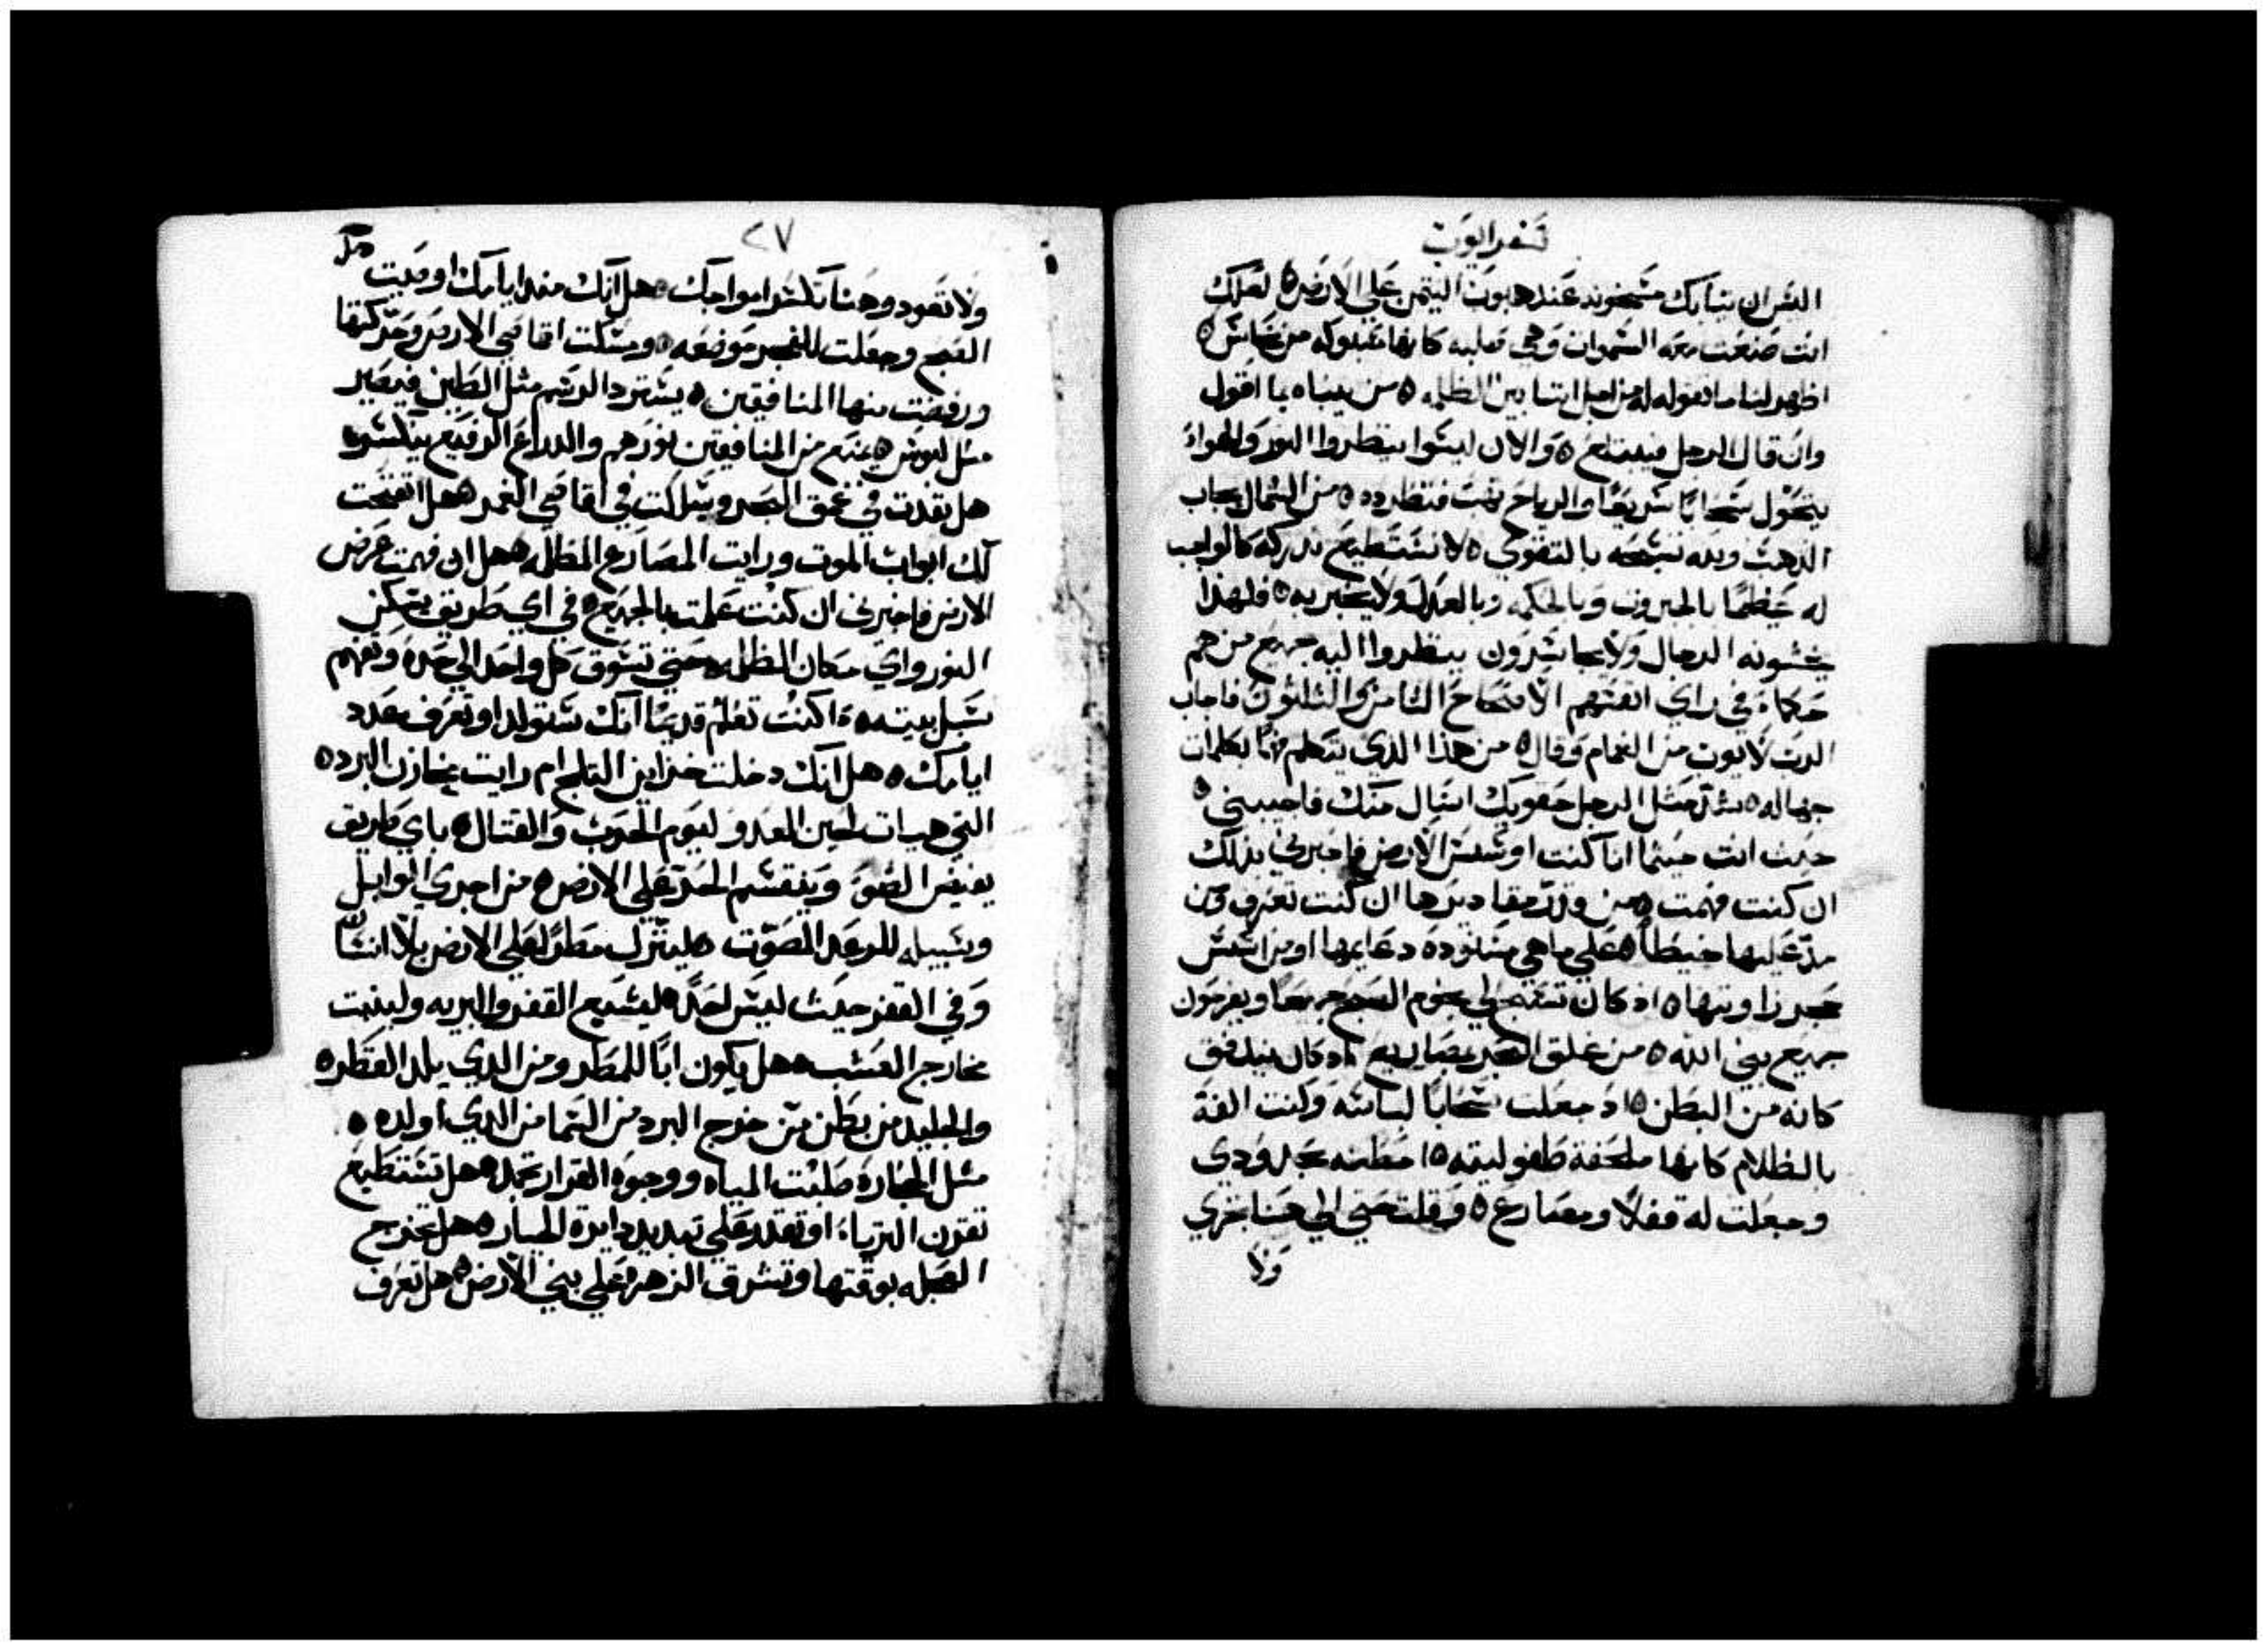 سفر ايوب
اليس ان ثيابك مسخونه عند هبوب التيمن علي الارض ه لعلك
انت صنعت معه السموات وهي صلبه كانها مسبوكه من نحاس ه
اظهر لنا ما نقوله له من اجل اننا بين الظلمه ه من ينباه بما اقول
وان قال الرجل فيبتلع ه والان ليسوا ينظروا النور والهواء
يتحول سحابا سريعا والرياح تهب فتطرده ه من الشمال يجاب
الدهب ولله نسبحه بالتقوي ه لا نستطيع ندركه كالواجب
له عظيما بالجبروت وبالحكمه وبالعدل ولا يخبر به ه فلهذا
يخشونه الرجال ولا يجاسرون ينظروا اليه جميع من هم
حكماء في راي انفسهم الاصحاح الثامن والثلثون فاجاب
الرب لايوب من الغمام وقال ه من هذا الذي يتكلم بكلمات
جهاله ه شد مثل الرجل حقويك اسال منك فاجيبني ه
حيث انت حيثما انا كنت اوسس الارض فاخبرني بذلك
ان كنت فهمت ه من وضع مقاديرها ان كنت تعرف ومن
مد عليها خيطا ه علي ما هي مسنوده دعايمها او من اسس
حجر زاويتها ه اذ كان تسبح لي نجوم الصبح جميعا ويفرحون
جميع بني الله ه من غلق البحر بمصاريع اذ كان يندفق
كانه من البطن ه اذ جعلت سحابا لباسه وكنت الفه
بالظلام كانها ملحفة طفوليته ه احطته بحدودي
وجعلت له قفلا ومصارع ه وقلت حتي الي هنا تجري
ولا
٢٧
ولا تعود وهنا تكسر امواجك ه هل انك منذ ايامك اوصيت
الصبح وجعلت للفجر موضعه ه ومسكت اقاصي الارض وحركتها
ورفضت منها المنافقين ه يسترد الرسم مثل الطين فيصير
مثل لبوس ه يمنع من المنافقين نورهم والدراع الرفيع ينكسر ه
هل نفدت في عمق البحر وسلكت في اقاصي الغمر ه هل انفتحت
لك ابواب الموت ورايت المصارع المظلمه ه هل انت فهمت عرض
الارض فاخبرني ان كنت علمت بالجميع ه في اي طريق يسكن
النور واي مكان الظلمه ه حتي تسوق كل واحد الي حده وتفهم
سبل بيته ه اكنت تعلم قديما انك ستولد او تعرف عدد
ايامك ه هل انك دخلت خزاين الثلج ام رايت مخازن البرد ه
التي هيات لحين العدو ليوم الحرب والقتال ه باي طريق
يفيض الضو وينقسم الحر علي الارض ه من اجري الوابل
وسبيله للرعد المصوت ه لينزل مطرا علي الارض بلا انسان
وفي القفر حيث ليس احد ه ليشبع القفر والبريه ولينبت
مخارج العشب ه هل يكون ابا للمطر ومن الذي يلد القطر ه
والجليد من بطن من خرج البرد من السما من الذي اولده ه
مثل الحجاره صلبت المياه ووجوه القرار تجمد ه هل تستطيع
تقرن الثريا او تقدر علي تبديد دايرة الجباره ه هل تخرج
الصبله بوقتها وتشرق الزهره علي بني الارض ه هل تعرف